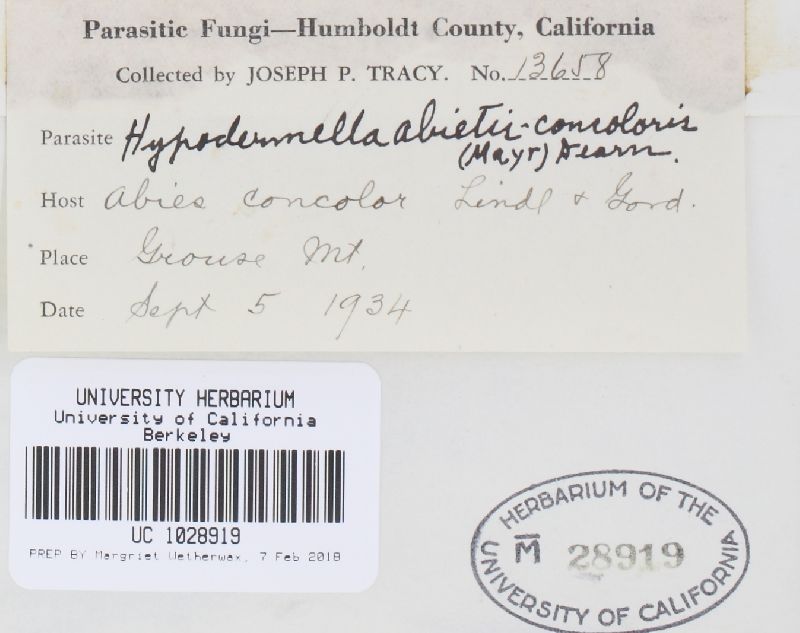 Parasitic Fungi—Humboldt County, California
Collected by JOSEPH P. TRACY. No. 13658
Parasite Hypodermella abietis-concoloris
(Mayr) Dearn.
Host Abies concolor Lindl & Gord.
Place Grouse Mt.
Date Sept 5 1934
UNIVERSITY HERBARIUM
University of California
Berkeley
UC 1028919
PREP BY Margriet Wetherwax, 7 Feb 2018
HERBARIUM OF THE
M 28919
UNIVERSITY OF CALIFORNIA